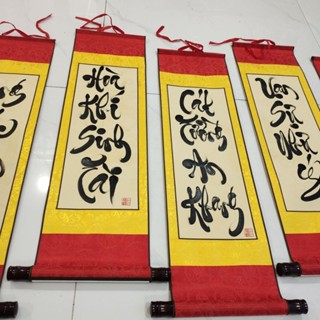 Hòa
Khí
Sinh
Tài
Cát
Tường
An
Khang
Vạn
Sự
Như
Ý